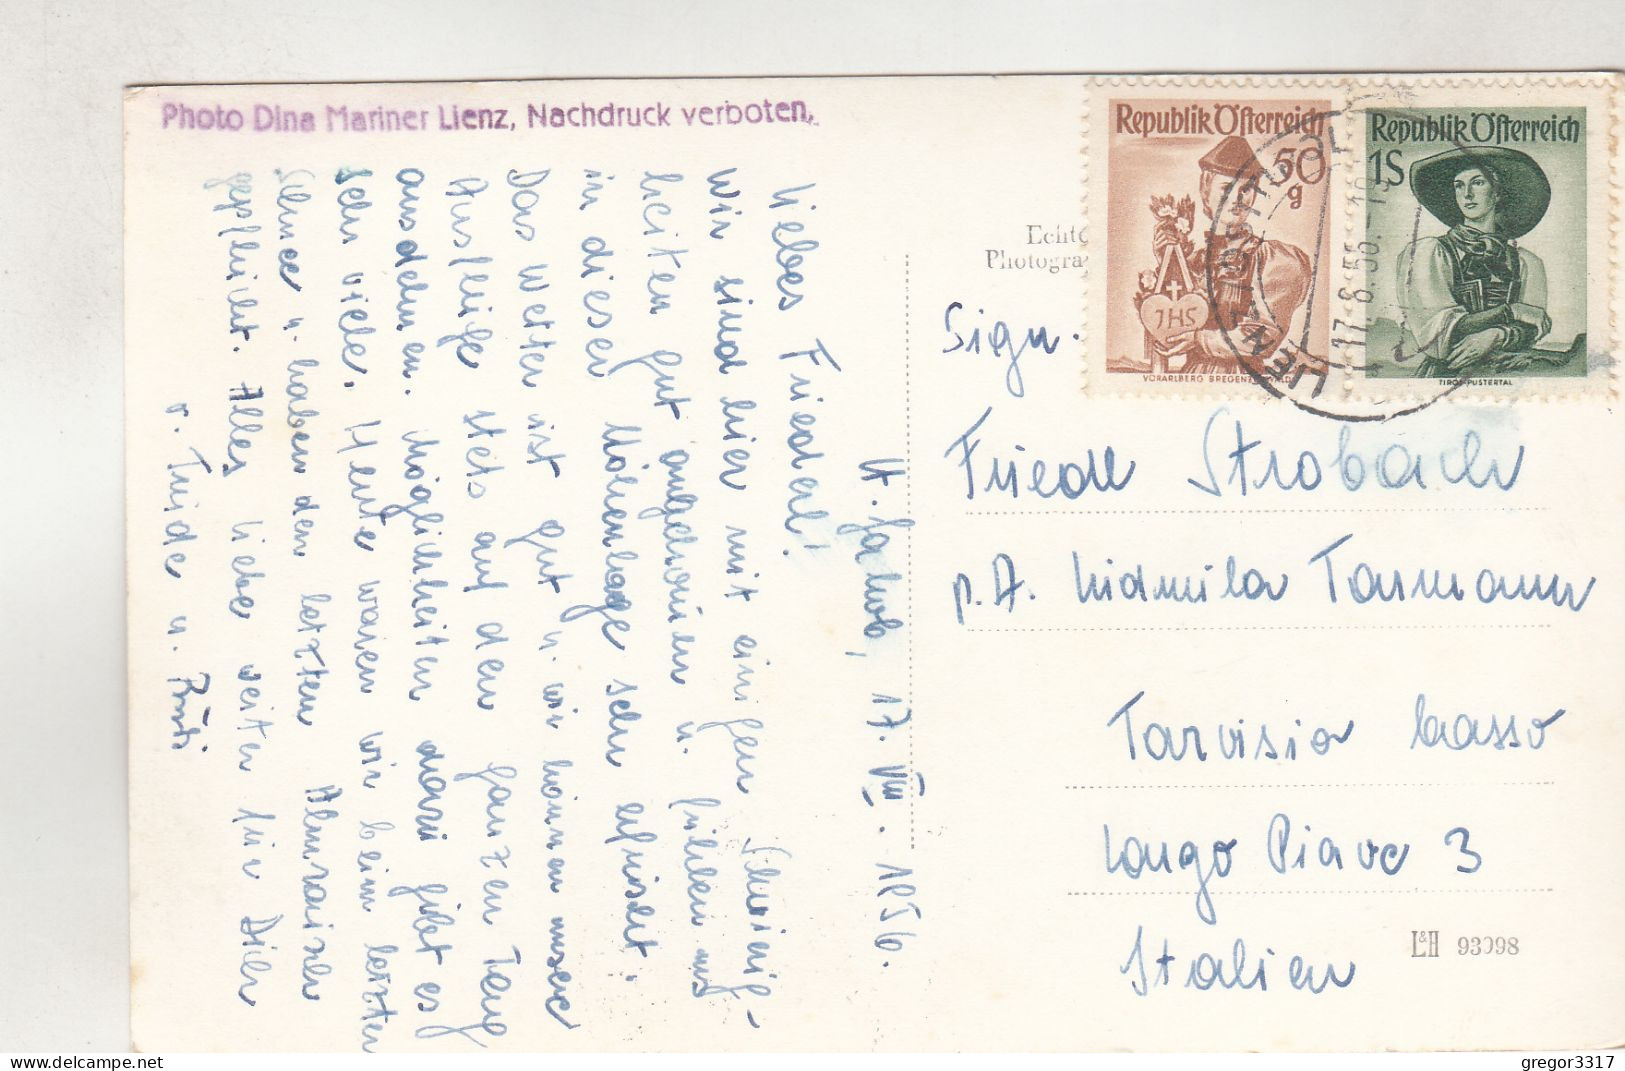 Photo Dina Mariner Lienz, Nachdruck verboten.
St. Jakob, 17. VIII. 1956.
Liebes Friedal!
Wir sind hier mit einigen Schwierig-
keiten gut angekommen u. fühlen uns
in dieser Höhenlage sehr erfrischt.
Das Wetter ist gut u. wir können unsere
Ausflüge stets auf den ganzen Tag
ausdehnen. Möglichkeiten dazu gibt es
sehr viele. Heute waren wir beim letzten
Schnee u. haben den letzten Almrausch
gepflückt. Alles Liebe weiter für Dich
v. Trude u.
Echte
Photogra
Republik Österreich
50
g
JHS
VORARLBERG BREGENZ WALD
Republik Österreich
1S
TIROL-PUSTERTAL
LIENZ OSTTIROL
17.8.56.
Sign.
Friedl Strobach
p. A. Ludmila Tarmann
Tarvisio basso
Longo Piave 3
Italien
L&H 93098
gregor3317